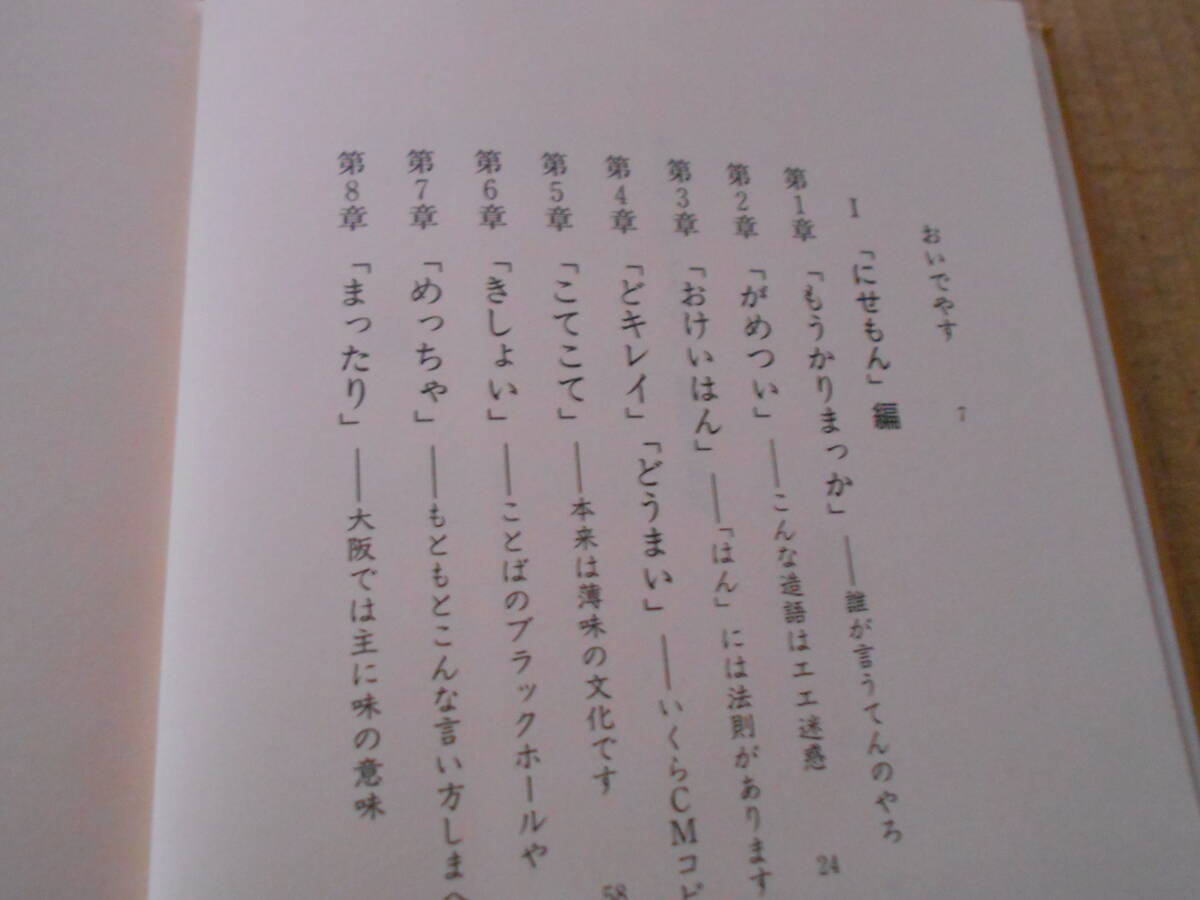 おいでやす 7
I 「にせもん」編
第1章 「もうかりまっか」――誰が言うてんのやろ
第2章 「がめつい」――こんな造語はエエ迷惑 24
第3章 「おけいはん」――「はん」には法則があります
第4章 「どキレイ」「どうまい」――いくらCMコピ
第5章 「こてこて」――本来は薄味の文化です 58
第6章 「きしょい」――ことばのブラックホールや
第7章 「めっちゃ」――もともとこんな言い方しまへ
第8章 「まったり」――大阪では主に味の意味